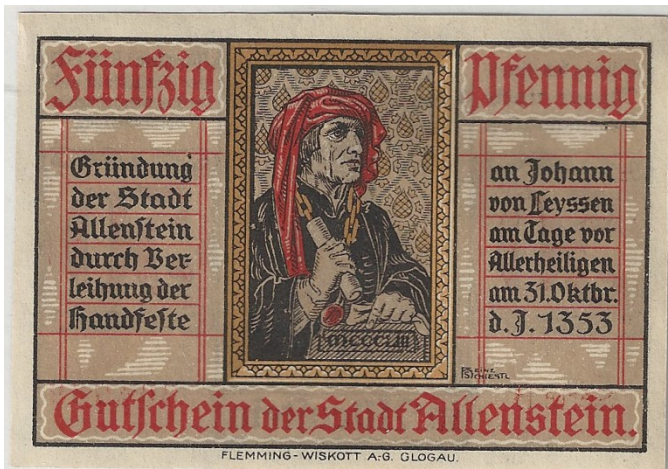 Fünfzig
Pfennig
Gründung
der Stadt
Allenstein
durch Ver
leihung der
Handfeste
an Johann
von Leyssen
am Tage vor
Allerheiligen
am 31. Oktbr.
d. J. 1353
MCCCLIII
HEINZ
SCHIESTL
Gutschein der Stadt Allenstein.
FLEMMING-WISKOTT A.-G. GLOGAU.